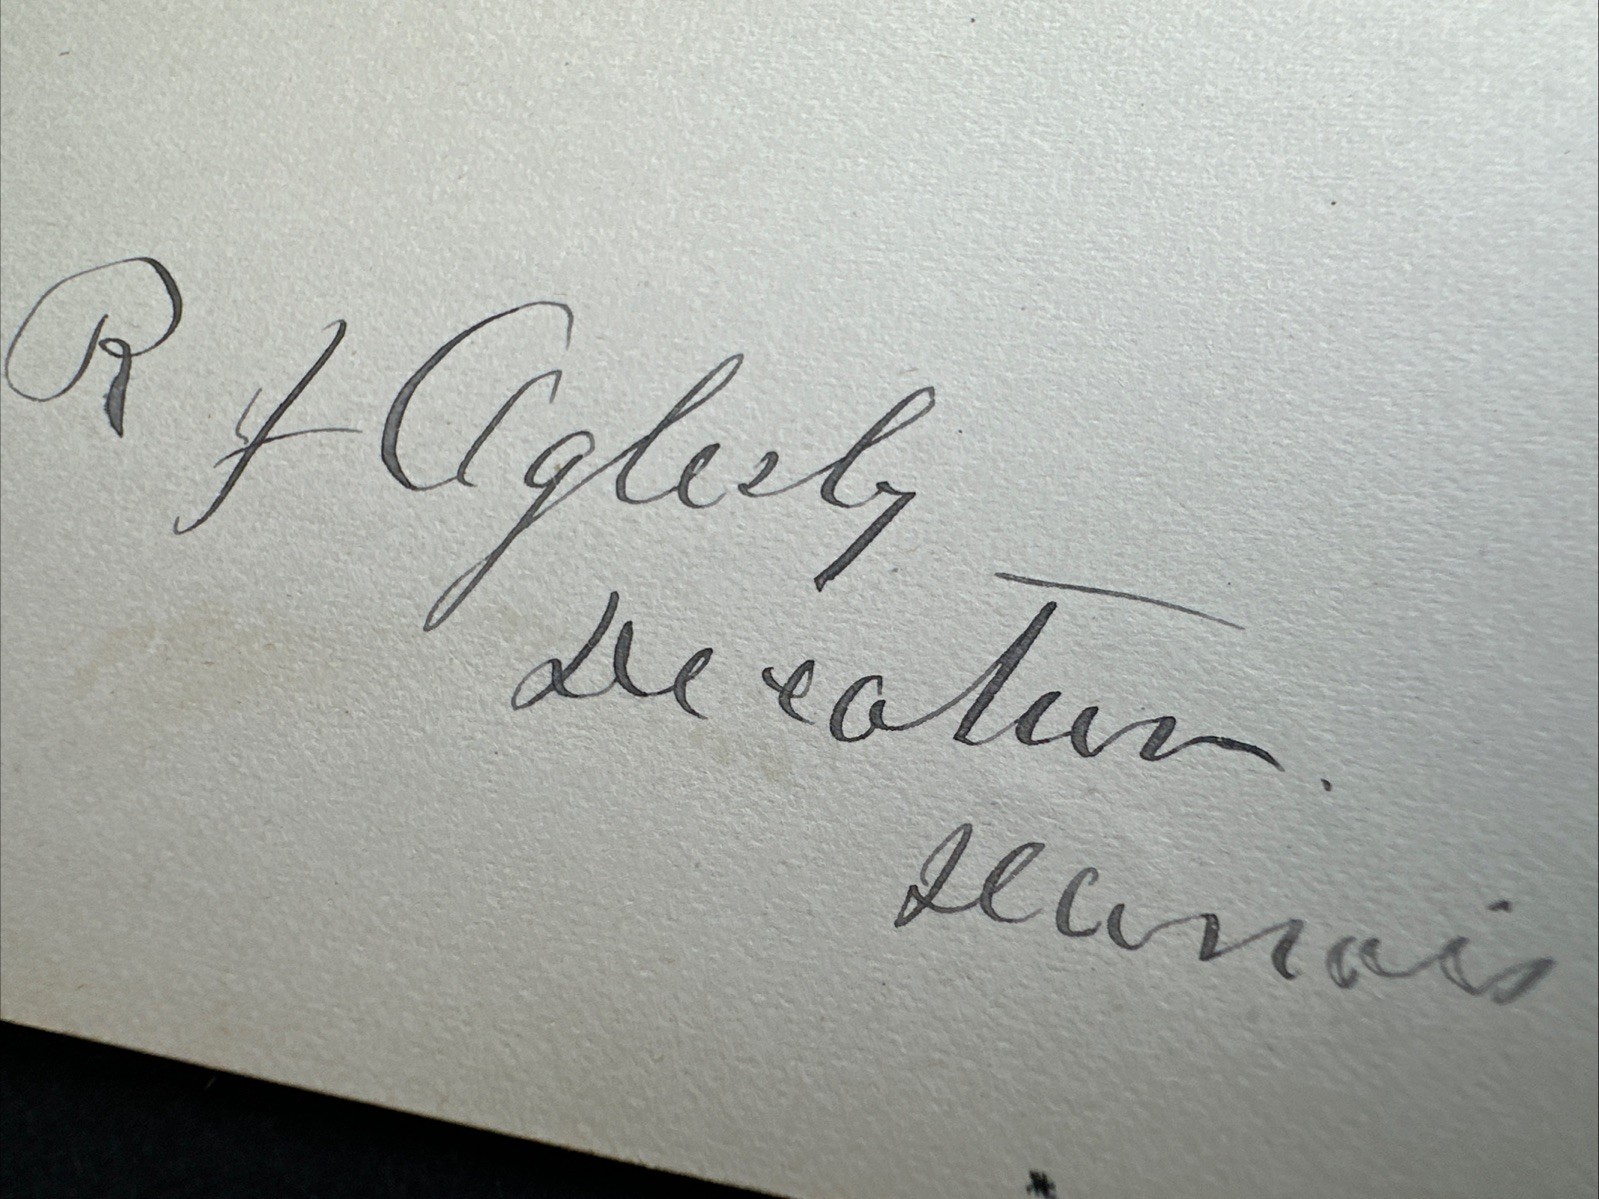 R J Oglesby
Decatur.
Illinois